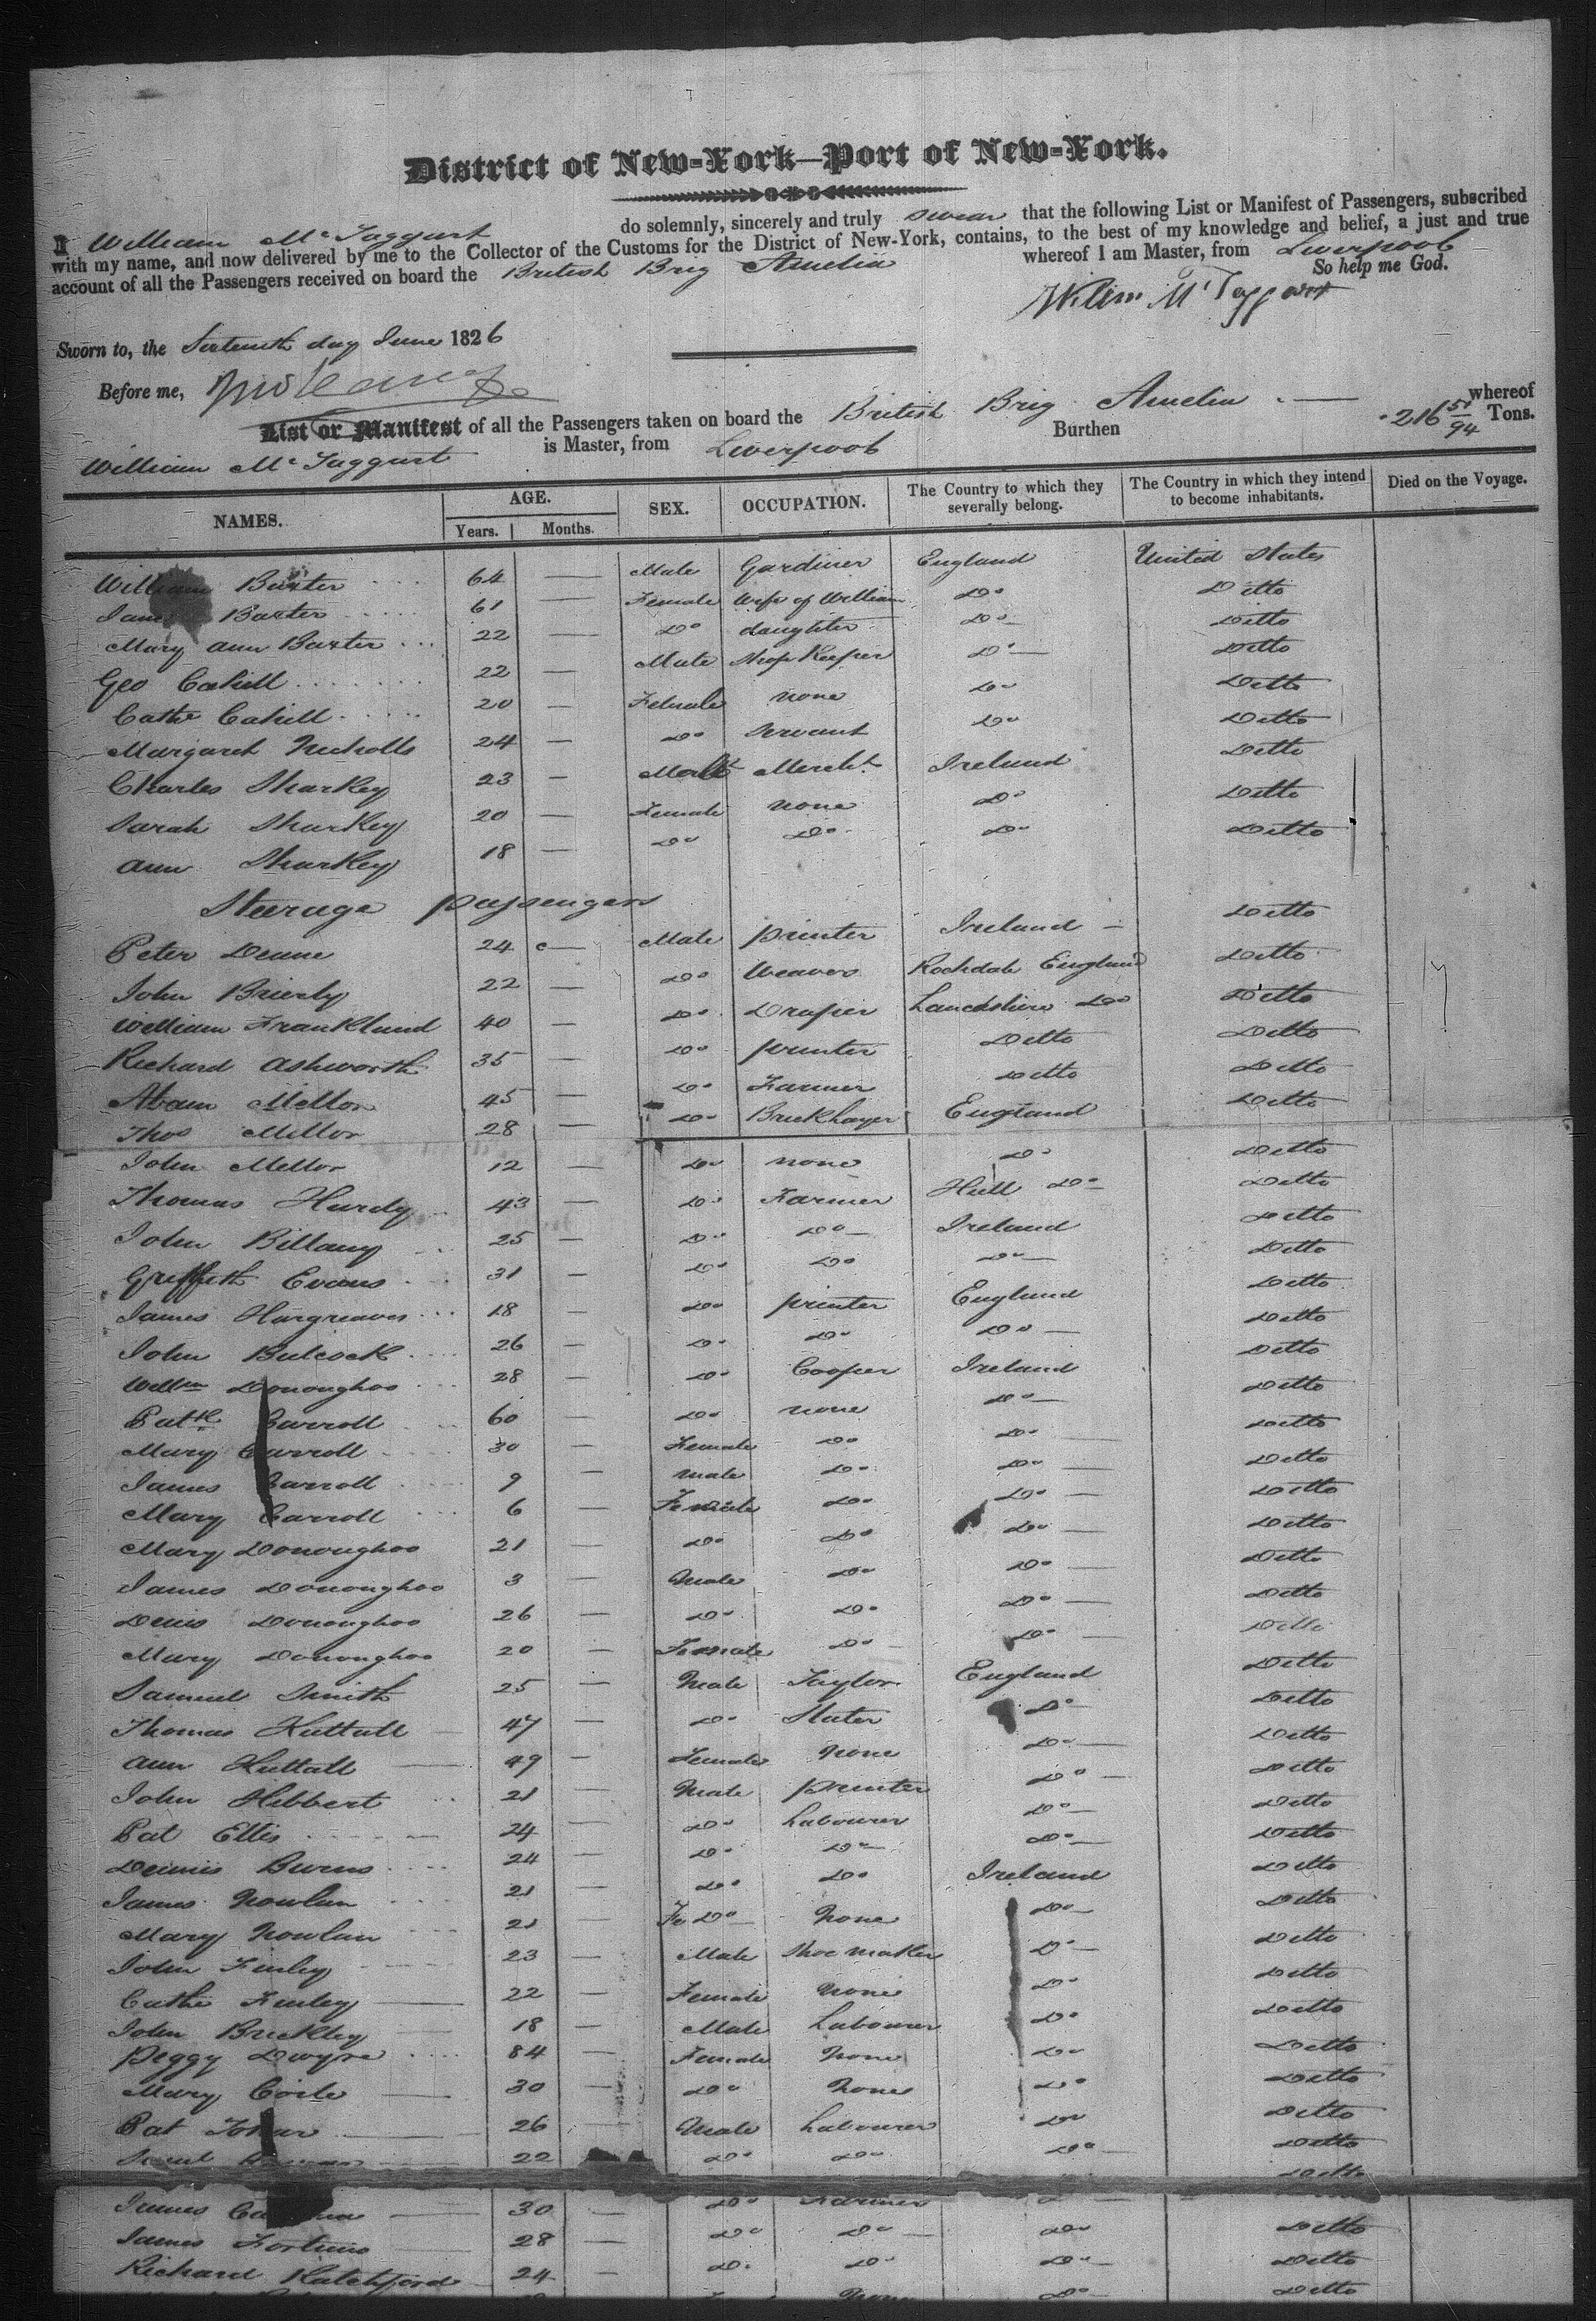 District of New-York—Port of New-York.
I William McTaggart do solemnly, sincerely and truly swear that the following List or Manifest of Passengers, subscribed
with my name, and now delivered by me to the Collector of the Customs for the District of New-York, contains, to the best of my knowledge and belief, a just and true
account of all the Passengers received on board the British Brig Amelia whereof I am Master, from Liverpool
So help me God.
Willm McTaggart
Sworn to, the Sixteenth day June 1826
Before me,
List or Manifest of all the Passengers taken on board the British Brig Amelia whereof
William McTaggart is Master, from Liverpool Burthen 216 51/94 Tons.
NAMES. AGE. Years. Months. SEX. OCCUPATION. The Country to which they severally belong. The Country in which they intend to become inhabitants. Died on the Voyage.
William Baxter 64 — Male Gardiner England United States
Jane Baxter 61 — Female Wife of William Do Ditto
Mary Ann Baxter 22 — Do daughter Do Ditto
Geo Cahill 22 — Male Shop Keeper Do Ditto
Cathe Cahill 20 — Female none Do Ditto
Margaret Nicholls 24 — Do Servant Do Ditto
Charles Sharkey 23 — Male Mercht Ireland Ditto
Sarah Sharkey 20 — Female none Do Ditto
Ann Sharkey 18 — Do Do Do Ditto
Steerage passengers
Peter Deane 24 — Male printer Ireland Ditto
John Brierly 22 — Do Weaver Rochdale England Ditto
William Frankland 40 — Do Draper Lancashire Do Ditto
Richard Ashworth 35 — Do printer Ditto Ditto
Abam Mellor 45 — Do Farmer Ditto Ditto
Thos Mellor 28 — Do Bricklayer England Ditto
John Mellor 12 — Do none Do Ditto
Thomas Hurdy 43 — Do Farmer Hull Do Ditto
John Billany 25 — Do Do Ireland Ditto
Griffith Evans 31 — Do Do Do Ditto
James Hargreaves 18 — Do printer England Ditto
John Bulcock 26 — Do Do Do Ditto
Willm Donoughoo 28 — Do Cooper Ireland Ditto
Patk Carroll 60 — Do none Do Ditto
Mary Carroll 30 — Female Do Do Ditto
James Carroll 9 — male Do Do Ditto
Mary Carroll 6 — Female Do Do Ditto
Mary Donoughoo 21 — Do Do Do Ditto
James Donoughoo 3 — Male Do Do Ditto
Denis Donoughoo 26 — Do Do Do Ditto
Mary Donoughoo 20 — Female Do Do Ditto
Samuel Smith 25 — Male Taylor England Ditto
Thomas Kuttall 47 — Do Slater Do Ditto
Ann Kuttall 49 — Female None Do Ditto
John Hibbert 21 — Male printer Do Ditto
Pat Ellis 24 — Do Labourer Do Ditto
Dennis Burns 24 — Do Do Do Ditto
James Nowlan 21 — Do Do Ireland Ditto
Mary Nowlan 21 — Fe Do None Do Ditto
John Finley 23 — Male Shoe maker Do Ditto
Cathe Finley 22 — Female None Do Ditto
John Brickley 18 — Male Labourer Do Ditto
Peggy Dwyre 84 — Female None Do Ditto
Mary Coile 30 — Do None Do Ditto
Pat 26 — Male Labourer Do Ditto
22 Do Do Do Ditto
James 30 — Do Farmer Ditto
James Fortune 28 — Do Do Do Ditto
Richard Ratchford 24 — Do Do Do Ditto
None Do Ditto